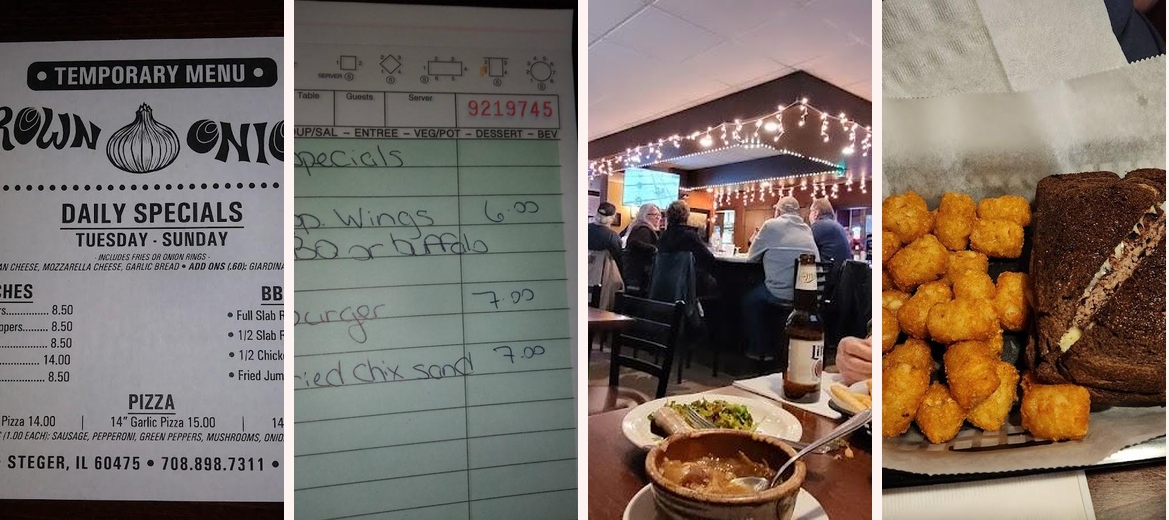 • TEMPORARY MENU •
ROWN ONIO
DAILY SPECIALS
TUESDAY - SUNDAY
- INCLUDES FRIES OR ONION RINGS -
AN CHEESE, MOZZARELLA CHEESE, GARLIC BREAD • ADD ONS (.60); GIARDINA
CHES
rs............ 8.50
ppers......... 8.50
8.50
14.00
8.50
BB
• Full Slab R
• 1/2 Slab R
• 1/2 Chick
• Fried Jum
PIZZA
Pizza 14.00 | 14" Garlic Pizza 15.00 | 14
(1.00 EACH): SAUSAGE, PEPPERONI, GREEN PEPPERS, MUSHROOMS, ONIO
STEGER, IL 60475 • 708.898.7311 •
SERVER
Table Guests Server
9219745
OUP/SAL – ENTREE – VEG/POT – DESSERT – BEV
specials
op Wings 6.00
BO or buffalo
burger 7.00
ried chix sand 7.00
Lite